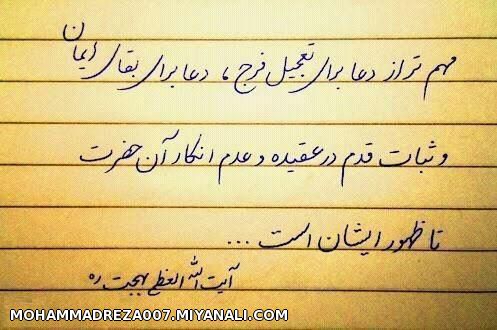 مهم تر از دعا برای تعجیل فرج، دعا برای بقای ایمان
و ثبات قدم در عقیده و عدم انکار آن حضرت
تا ظهور ایشان است ...
آیت الله العظمی بهجت ره
MOHAMMADREZA007.MIYANALI.COM